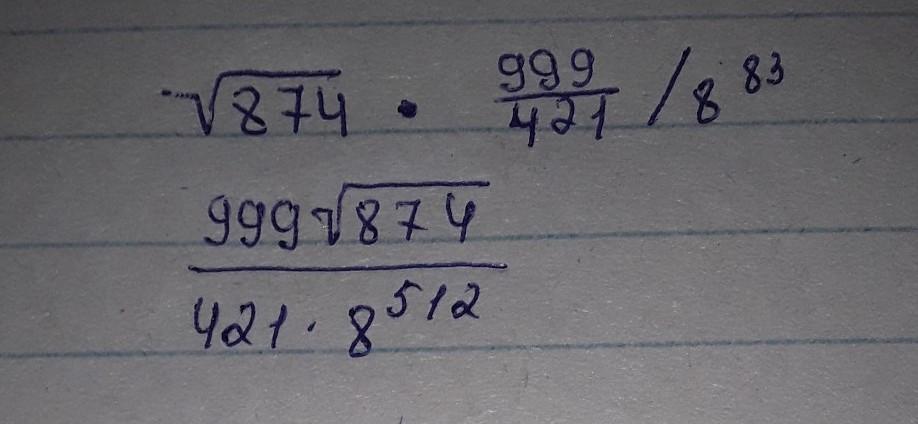 √874 • 999/421 / 8^83
999√874
421 · 8^512